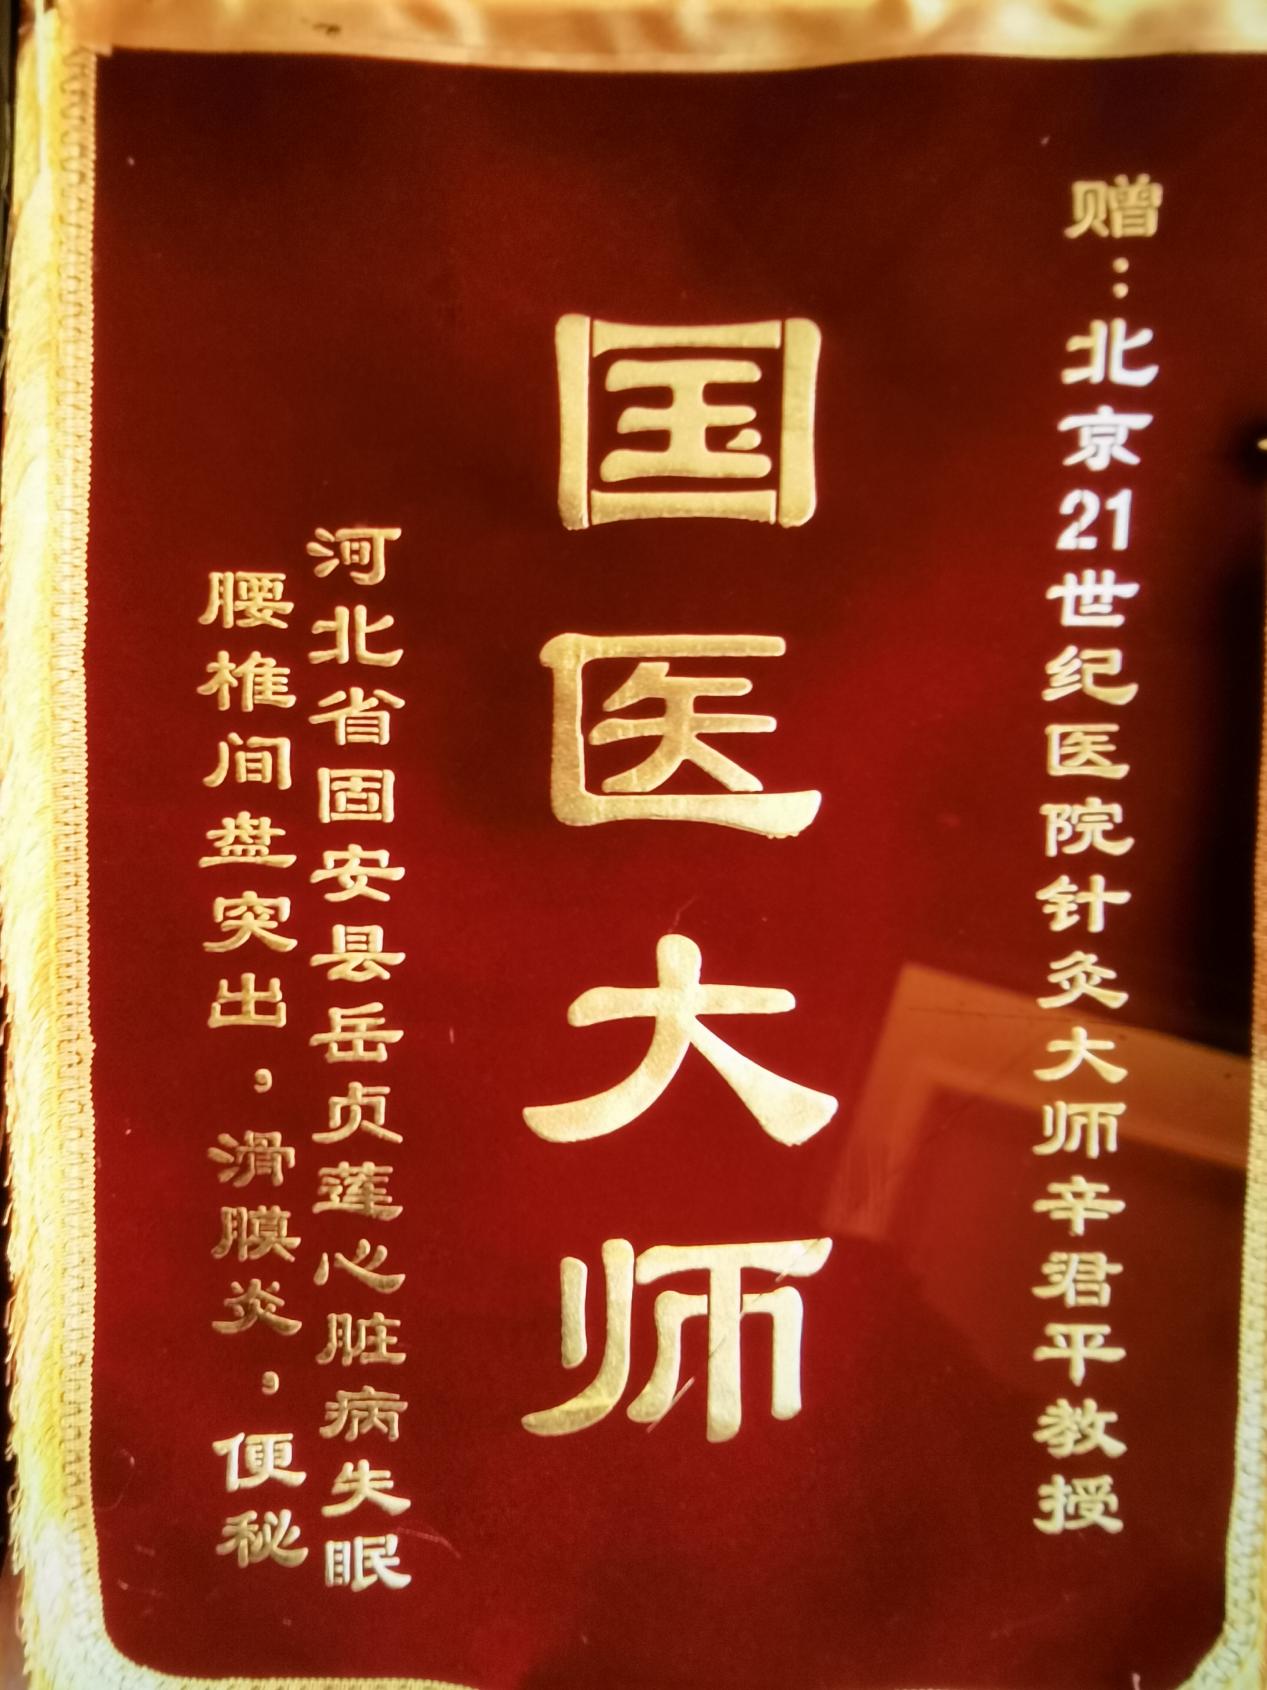 赠：北京21世纪医院针灸大师辛君平教授
国医大师
河北省固安县岳贞莲心脏病失眠
腰椎间盘突出，滑膜炎，便秘